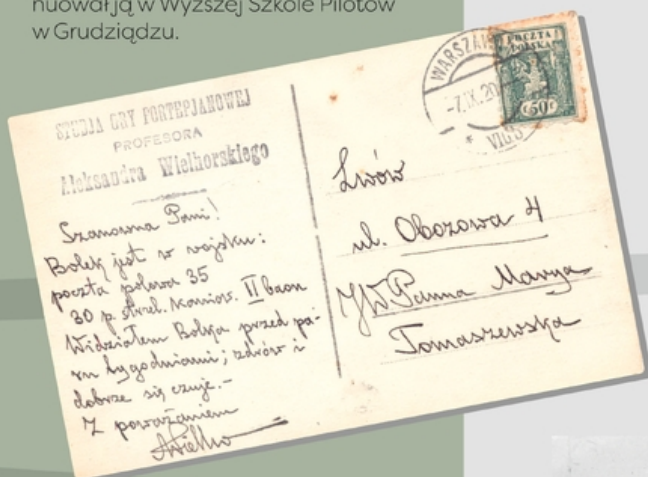 nuował ją w Wyższej Szkole Pilotów
w Grudziądzu.
STUDJA GRY FORTEPJANOWEJ
PROFESORA
Aleksandra Wielhorskiego
Szanowna Pani!
Bolek jest w wojsku:
poczta polowa 35
30 p. strzel. Kaniow. II baon
Widziałem Bolka przed pa-
ru tygodniami; zdrów i
dobrze się czuje.-
Z poważaniem
AWielho
WARSZAWA
-7.IX.20
VIG3
POCZTA
POLSKA
50
Lwów
ul. Obozowa 4
JW Panna Marya
Tomaszewska